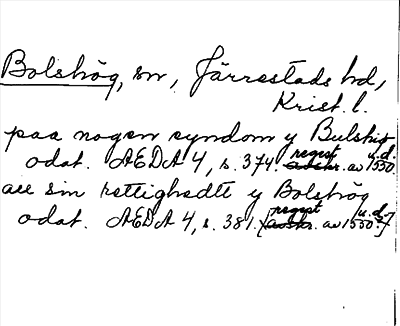 Bolshög, sn, Järrestads hd,
Krist. l.
paa nogen eyndom y Bulshio
odat. ÆDA 4, s. 374. regest av 1550. u.d.
all sin rettighedt y Bolshög
odat. ÆDA 4, s. 381. [regest av 1550?] u.d.